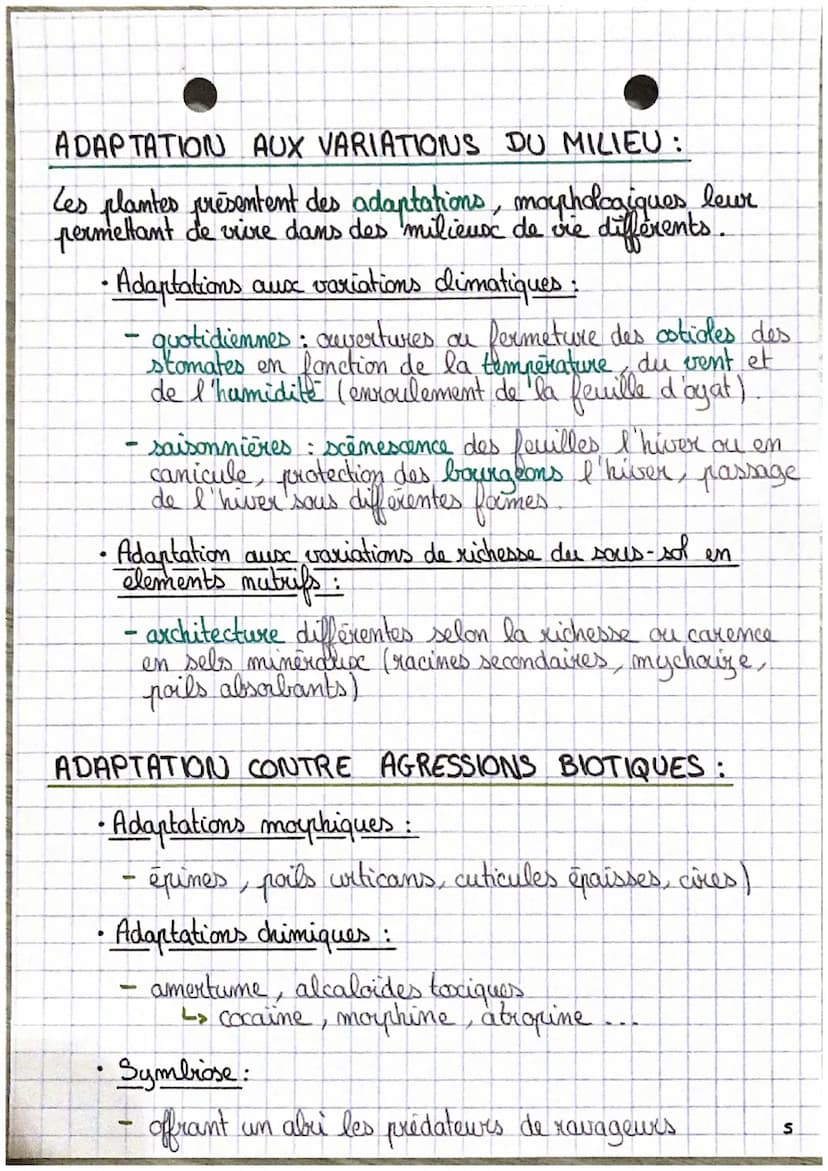 ADAPTATION AUX VARIATIONS DU MILIEU :
Les plantes présentent des adaptations, morphologiques leur
permettant de vivre dans des milieux de vie différents.
• Adaptations aux variations climatiques :
- quotidiennes : ouvertures ou fermeture des ostioles des
stomates en fonction de la température, du vent et
de l'humidité (enroulement de la feuille d'oyat).
- saisonnières : scénescence des feuilles l'hiver ou en
canicule, protection des bourgeons l'hiver, passage
de l'hiver sous différentes formes.
• Adaptation aux variations de richesse du sous-sol en
élements nutrifs :
- architecture différentes selon la richesse ou carence
en sels minéraux (racines secondaires, mychorize,
poils absorbants)
ADAPTATION CONTRE AGRESSIONS BIOTIQUES :
• Adaptations morphiques :
- épines, poils urticans, cuticules épaisses, cires)
• Adaptations chimiques :
- amertume, alcaloïdes toxiques
↳ cocaïne, morphine, atropine ...
• Symbiose :
- offrant un abri les prédateurs de ravageurs
5